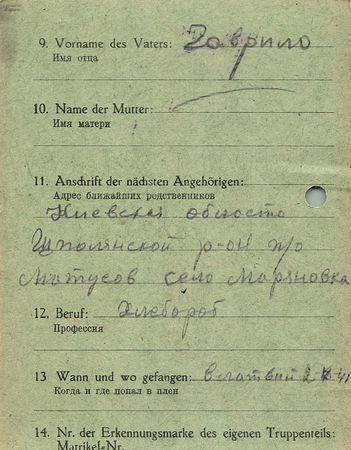 9. Vorname des Vaters: Гаврило
Имя отца
10. Name der Mutter:
Имя матери
11. Anschrift der nächsten Angehörigen:
Адрес ближайших родственников
Киевская область
Шполянской р-он п/о
Матусов село Маряновка
12. Beruf: Хлебороб
Профессия
13 Wann und wo gefangen:
Когда и где попал в плен
14. Nr. der Erkennungsmarke des eigenen Truppenteils:
Matrikel-Nr.